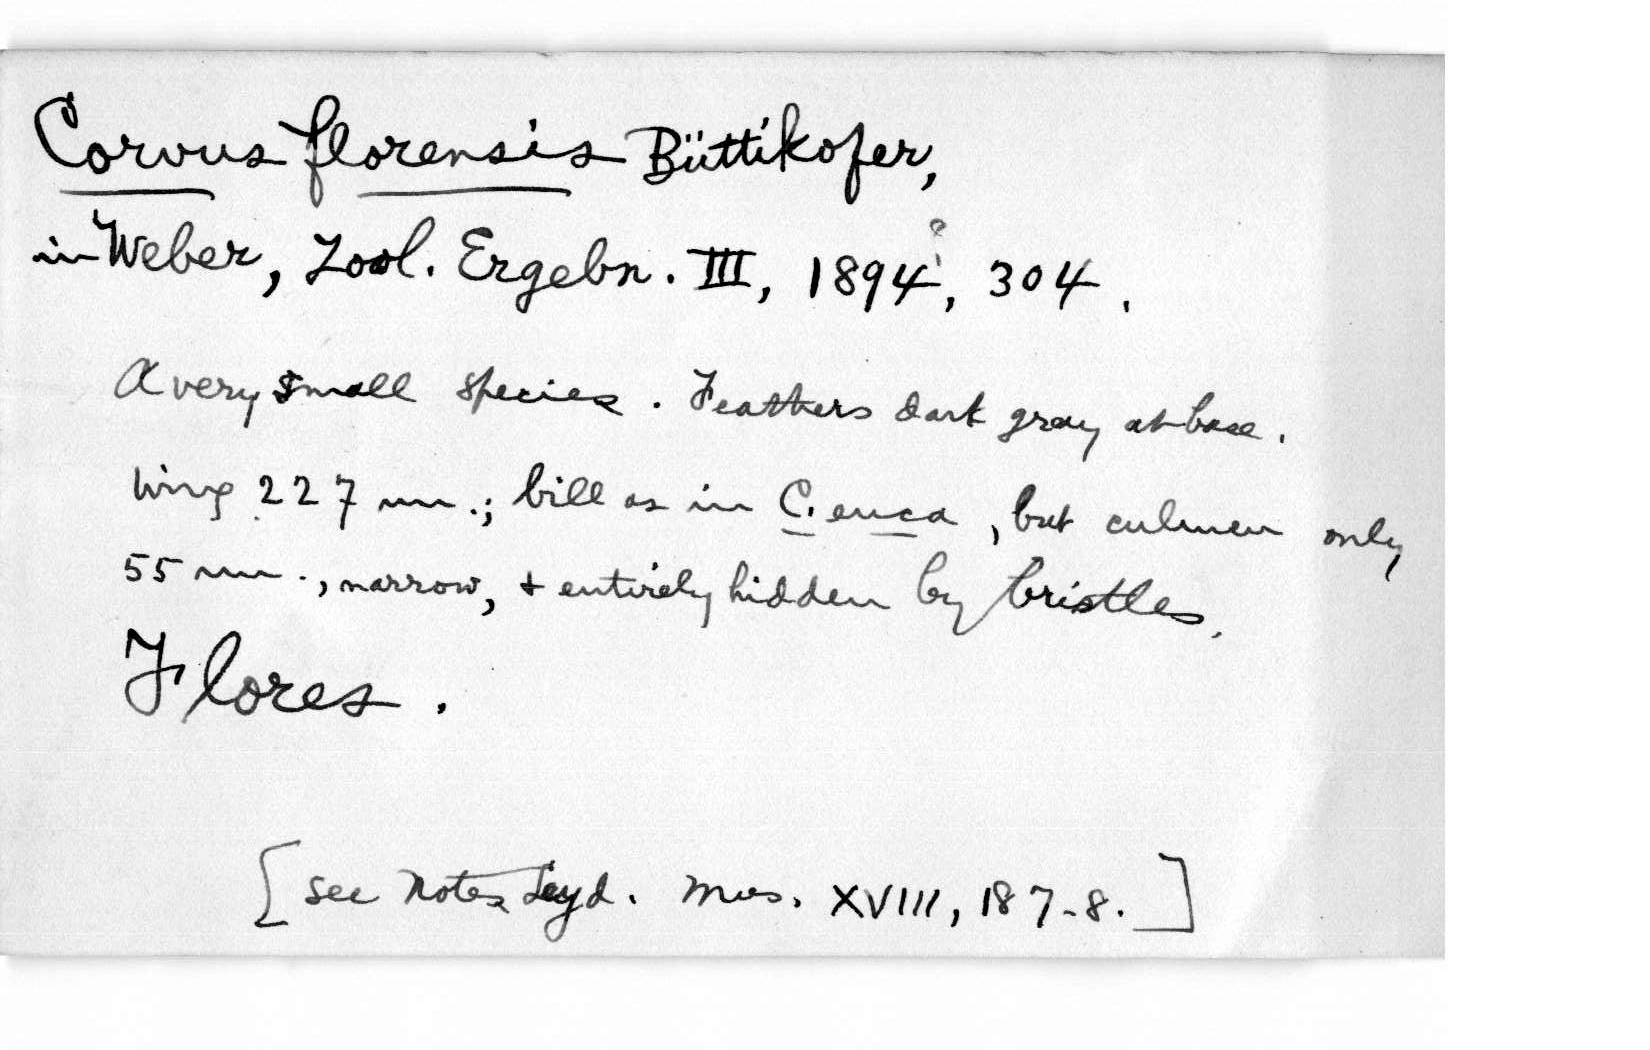 Corvus florensis Büttikofer,
in Weber, Zool. Ergebn. III, 1894?, 304.
A very small species. Feathers dark gray at base.
Wing 227 mm.; bill as in C. enca, but culmen only
55 mm., narrow, + entirely hidden by bristles.
Flores.
[see Notes Leyd. Mus. XVIII, 187-8.]